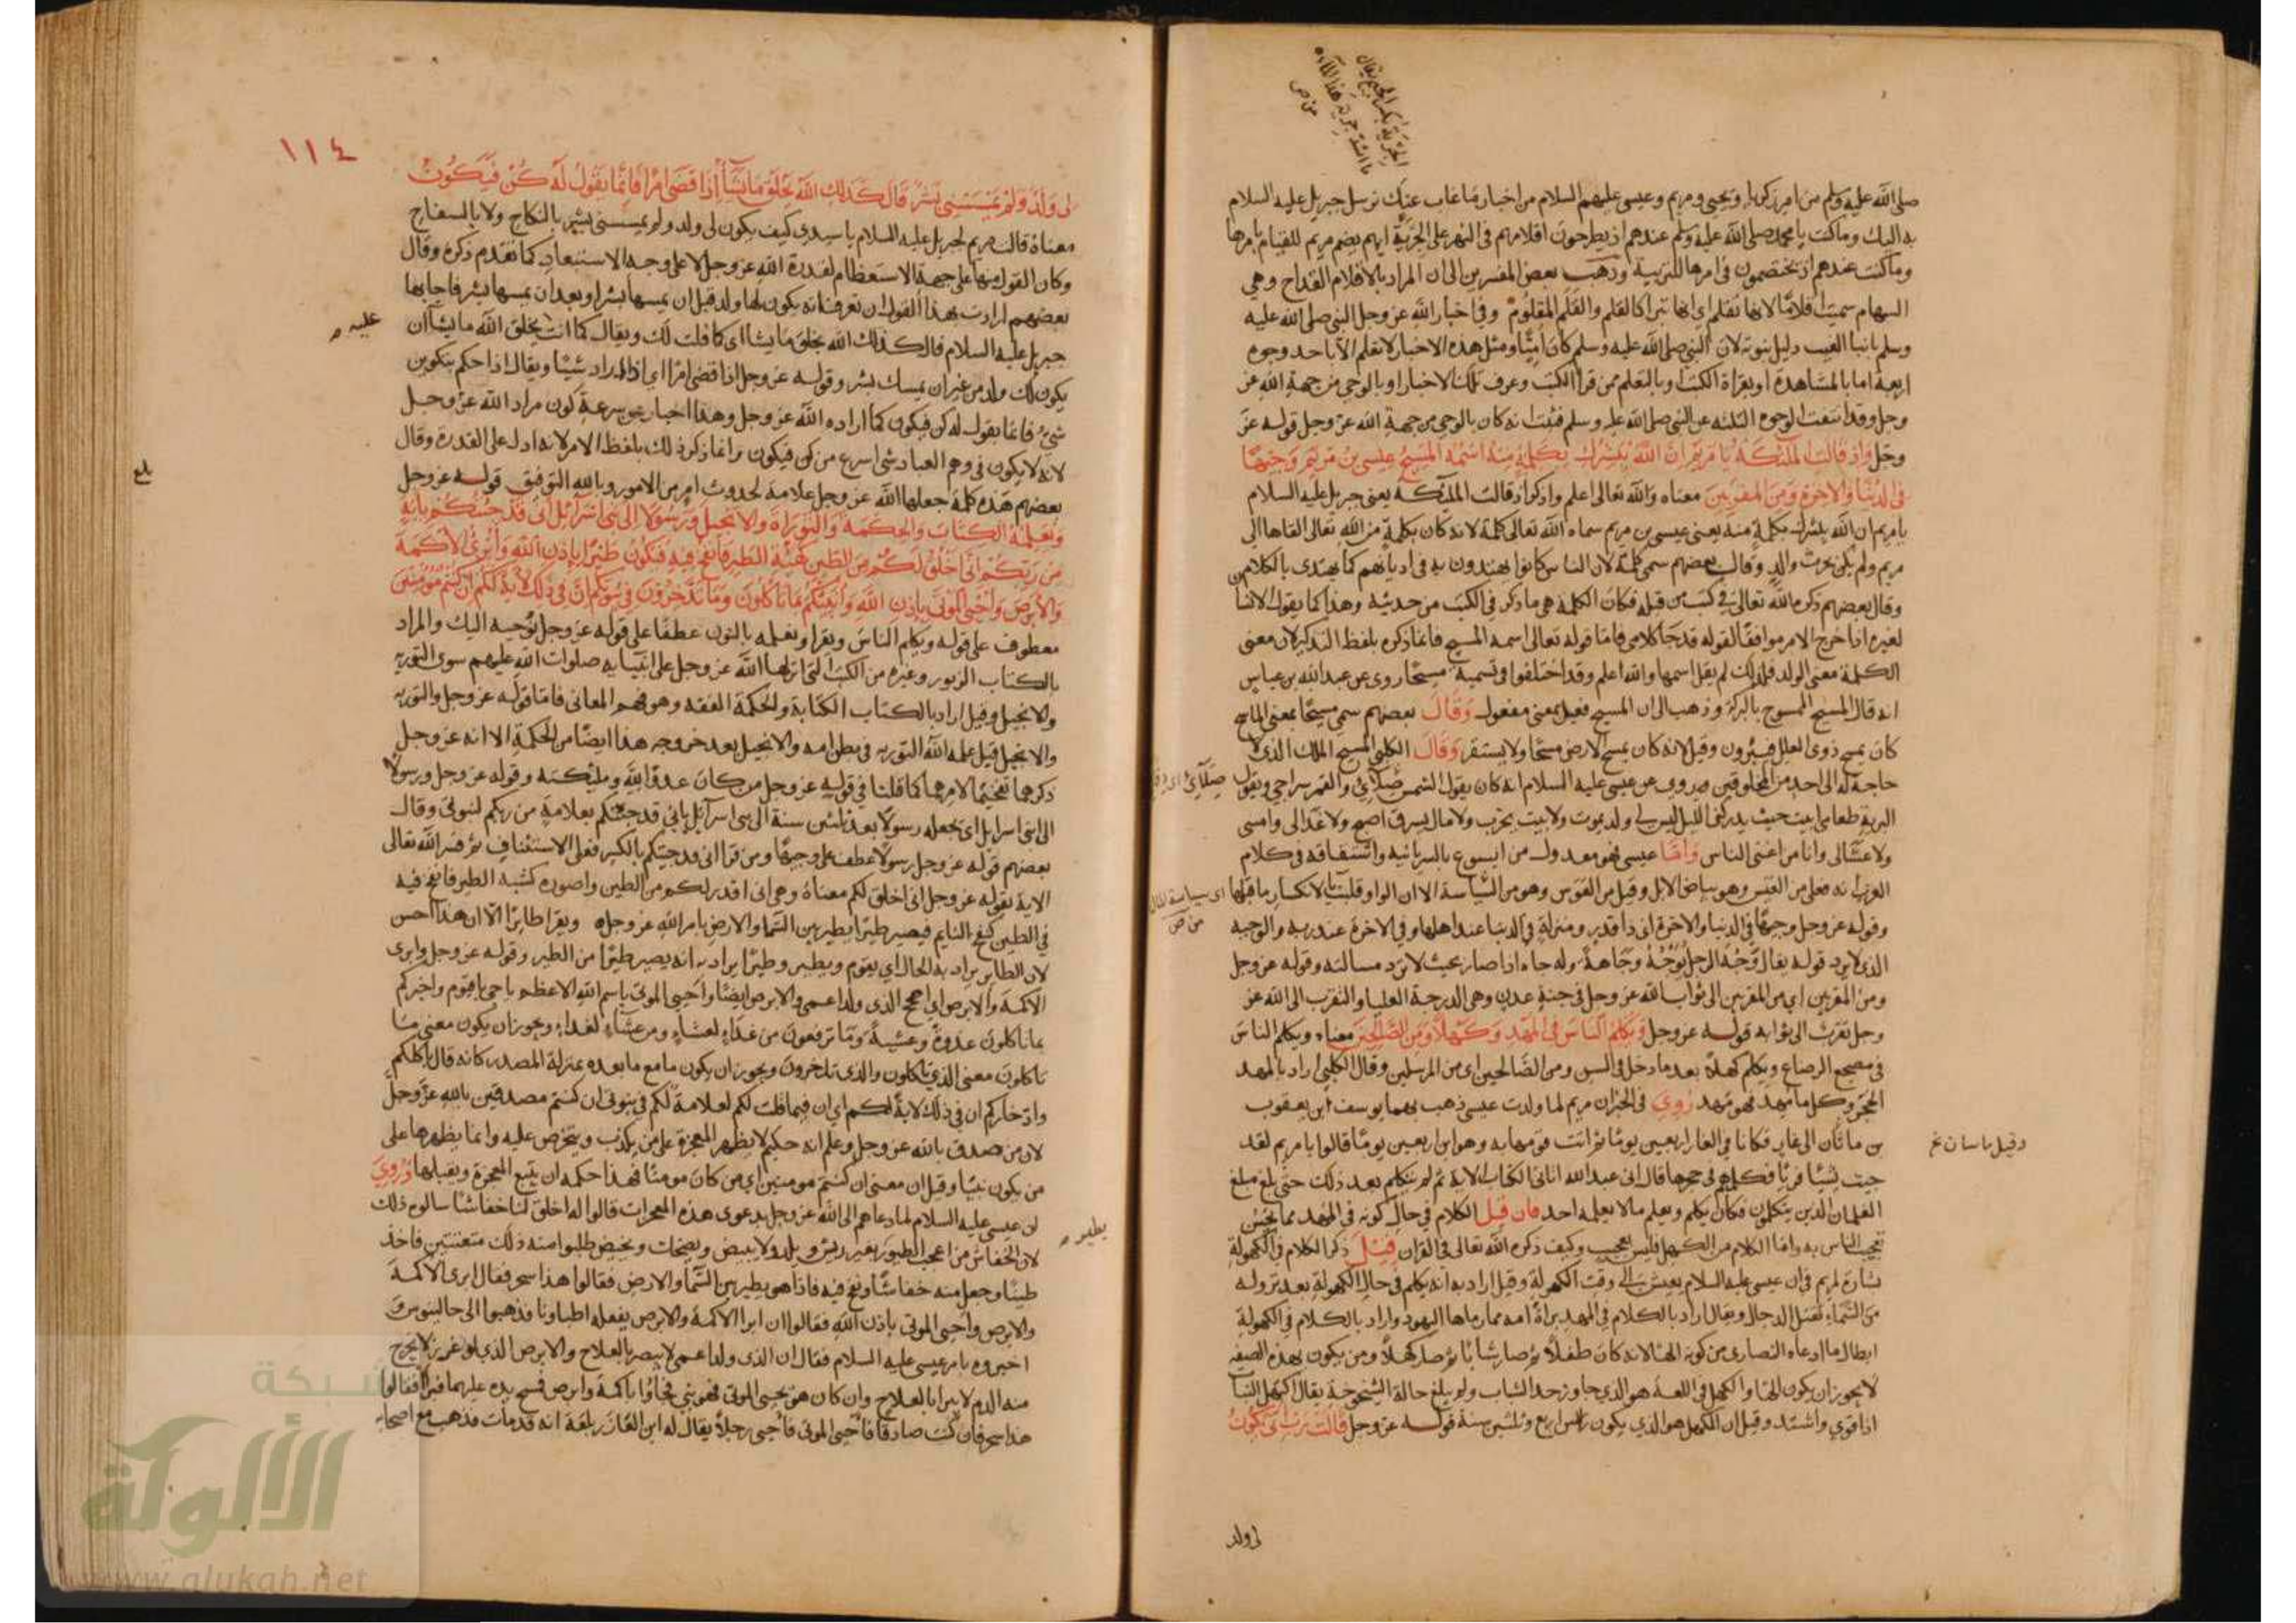 الجرية بكسر الجيم يقال
ما اشد جرية هذا الماء
من ص
صلى الله عليه وسلم من امر زكريا ويحيى ومريم وعيسى عليهم السلام من اخبار ما غاب عنك نرسل جبريل عليه السلام
به اليك وما كنت يا محمد صلى الله عليه وسلم عندهم اذ يطرحون اقلامهم في النهر على الجرية ايهم يضم مريم للقيام بامرها
وما كنت عندهم اذ يختصمون في امرها للتربية وذهب بعض المفسرين الى ان المراد بالاقلام القداح وهي
السهام سميت اقلاما لانها تقلم اي انها تبرا كالقلم والقلم المقلوم وفي اخبار الله عز وجل النبي صلى الله عليه
وسلم بانبا الغيب دليل نبوته لان النبي صلى الله عليه وسلم كان اميا ومثل هذه الاخبار لا تعلم الا باحد وجوه
اربعة اما بالمشاهدة او بقراة الكتب او بالتعلم ممن قرا الكتب وعرف تلك الاخبار او بالوحي من جهة الله عز
وجل وقد انتفت الوجوه الثلثه عن النبي صلى الله عليه وسلم فثبت انه كان بالوحي من جهة الله عز وجل قوله عز
وجل واذ قالت الملئكة يا مريم ان الله يبشرك بكلمة منه اسمه المسيح عيسى بن مريم وجيها
في الدنيا والاخرة ومن المقربين معناه والله تعالى اعلم واذكر اذ قالت الملئكة يعني جبريل عليه السلام
يا مريم ان الله يبشرك بكلمة منه يعني عيسى بن مريم سماه الله تعالى كلمة لانه كان بكلمة من الله تعالى القاها الى
مريم ولم يكن بحرث والد وقال بعضهم سمي كلمة لان الناس كانوا يهتدون به في اديانهم كما يهتدى بالكلام
وقال بعضهم ذكره الله تعالى في كتب من قبله فكان الكلمة هي ما ذكر في الكتب من حديثه وهذا كما يقول الانسان
لغيره اذا خرج الامر موافقا لقوله قد جا كلامي فاما قوله تعالى اسمه المسيح فانما ذكره بلفظ التذكير لان معنى
الكلمة معنى الولد فلذلك لم يقل اسمها والله اعلم وقد اختلفوا في تسمية مسيحا روي عن عبد الله بن عباس
انه قال المسيح الممسوح بالبركة وذهب الى ان المسيح فعيل بمعنى مفعول وقال بعضهم سمي مسيحا بمعنى الماسح
كان يمسح ذوي العلل فيبرون وقيل لانه كان يمسح الارض مسحا ولا يستقر وقال الكلبي المسيح الملك الذي لا
حاجة له الى احد من المخلوقين وروى عن عيسى عليه السلام انه كان يقول الشمس صلائي والقمر سراجي وبقول
البرية طعامي ابيت حيث يدركني الليل ليس لي ولد يموت ولا بيت يخرب ولا مال يسرق اصبح ولا غدا لي وامسي
ولا عشا لي وانا من اغنى الناس واما عيسى فهو معدول من ايسوع بالسريانيه واشتقاقه في كلام
العرب انه فعلى من العيس وهو بياض الابل وقيل من العوس وهو من السياسة الا ان الواو قلبت يا لانكسار ما قبلها
وقوله عز وجل وجيها في الدنيا والاخرة اي ذا قدر ومنزلة في الدنيا عند اهلها وفي الاخرة عند ربه والوجيه
الذي لا يرد قوله يقال وجه الرجل يوجه وجاهة وله جاه اذا صار بحيث لا ترد مسالته وقوله عز وجل
ومن المقربين اي من المقربين الى ثواب الله عز وجل في جنة عدن وهي الدرجة العليا والتقرب الى الله عز
وجل تقرب الى ثوابه قوله عز وجل ويكلم الناس في المهد وكهلا ومن الصالحين معناه ويكلم الناس
في مضجع الرضاع ويكلم كهلا بعد ما دخل في السن ومن الصالحين اي من المرسلين وقال الكلبي اراد بالمهد
الحجر وكل ما مهد فهو مهد روي في الخبر ان مريم لما ولدت عيسى ذهب بهما يوسف ابن يعقوب
بن ماثان الى غار فكانا في الغار اربعين يوما ثم اتت قومها به وهو ابن اربعين يوما قالوا يا مريم لقد
جيت شيئا فريا فكلمهم في حجرها قال اني عبد الله اتاني الكتاب الاية ثم لم يتكلم بعد ذلك حتى بلغ مبلغ
الغلمان الذين يتكلمون فكان يكلم ويعلم ما لا يعلمه احد فان قيل الكلام في حال كونه في المهد مما يحسن
تعجب الناس به واما الكلام من الكهل فليس بعجيب وكيف ذكره الله تعالى في القران قيل ذكر الكلام في الكهولة
بشارة لمريم في ان عيسى عليه السلام يعيش الى وقت الكهولة وقيل اراد به انه يكلم في حال الكهولة بعد نزوله
من السماء لقتل الدجال ويقال اراد بالكلام في المهد براة امه مما رماها اليهود واراد بالكلام في الكهولة
ابطال ما ادعاه النصارى من كونه الها لانه كان طفلا ثم صار شابا ثم صار كهلا ومن يكون بهذه الصفه
لا يجوز ان يكون الها والكهل في اللغة هو الذي جاوز حد الشباب ولم يبلغ حالة الشيخوخة يقال اكتهل النبات
اذا قوي واشتد وقيل ان الكهل هو الذي يكون راس اربع وثلثين سنة قوله عز وجل قالت رب انى يكون
وقيل ماسان نخ
من ص
لي ولد
١١٤
لي ولد ولم يمسسني بشر قال كذلك الله يخلق ما يشاء اذا قضى امرا فانما يقول له كن فيكون
معناه قالت مريم لجبريل عليه السلام يا سيدي كيف يكون لي ولد ولم يمسسني بشر بالنكاح ولا بالسفاح
وكان القول منها على جهة الاستعظام لقدرة الله عز وجل لا على وجه الاستبعاد كما تقدم ذكره وقال
بعضهم ارادت بهذا القول ان تعرف انه يكون لها ولد قبل ان يمسها بشر او بعد ان يمسها بشر فاجابها
جبريل عليه السلام قال كذلك الله يخلق ما يشا اي كما قلت لك ويقال كما انت يخلق الله ما يشا ان
عليه
يكون لك ولد من غير ان يمسك بشر وقوله عز وجل اذا قضى امرا اي اذا اراد شيئا ويقال اذا حكم بتكوين
شيء فانما يقول له كن فيكون كما اراده الله عز وجل وهذا اخبار عن سرعة كون مراد الله عز وجل
لانه لا يكون في وهم العباد شي اسرع من كن فيكون وانما ذكر ذلك بلفظ الامر لانه ادل على القدرة وقال
بعضهم هذه كلمة جعلها الله عز وجل علامة لحدوث امر من الامور وبالله التوفيق قوله عز وجل
بلغ
ونعلمه الكتاب والحكمة والتوراة والانجيل ورسولا الى بني اسرائيل اني قد جئتكم باية
من ربكم اني اخلق لكم من الطين كهيئة الطير فانفخ فيه فيكون طيرا باذن الله وابرئ الاكمة
والابرص واحيي الموتى باذن الله وانبئكم بما تاكلون وما تدخرون في بيوتكم ان في ذلك لاية لكم ان كنتم مؤمنين
معطوف على قوله ويكلم الناس ويقرا ونعلمه بالنون عطفا على قوله عز وجل نوحيه اليك والمراد
بالكتاب الزبور وغيره من الكتب التي انزلها الله عز وجل على انبيايه صلوات الله عليهم سوى التوريه
والانجيل وقيل اراد بالكتاب الكتابة والحكمة الفقه وهو فهم المعاني فاما قوله عز وجل والتوريه
والانجيل قيل علمه الله التوريه في بطن امه والانجيل بعد خروجه هذا ايضا من الحكمة الا انه عز وجل
ذكرهما تفخيما لامرهما كما قلنا في قوله عز وجل من كان عدوا لله وملئكته وقوله عز وجل ورسولا
الى بني اسرايل اي نجعله رسولا بعد ثلثين سنة الى بني اسرآئل باني قد جئتكم بعلامة من ربكم لنبوتي وقال
بعضهم قوله عز وجل رسولا عطف على وجيها ومن قرا اني قد جيتكم بالكسر فعلى الاستئناف ثم فسر الله تعالى
الاية بقوله عز وجل اني اخلق لكم معناه وهي اني اقدر لكم من الطين واصوره كشبه الطير فانفخ فيه
في الطين كنفخ النايم فيصير طيرا يطير بين السماء والارض بامر الله عز وجل ويقرا طايرا الا ان هذا احسن
لان الطاير يراد به الحال اي يقوم ويطير وطيرا يراد به انه يصير طيرا من الطير وقوله عز وجل وابرى
الاكمة والابرص اي اصحح الذي ولد اعمى والابرص ايضا واحيي الموتى باسم الله الاعظم يا حي يا قيوم واخبركم
بما تاكلون غدوة وعشية وما ترفعون من غداء لعشاء ومن عشاء لغداء ويجوز ان يكون معنى ما
تاكلون معنى الذي تاكلون والذي تدخرون ويجوز ان يكون ما مع ما بعده بمنزلة المصدر كانه قال باكلكم
وادخاركم ان في ذلك لاية لكم اي ان فيما قلت لكم لعلامة لكم في نبوتي ان كنتم مصدقين بالله عز وجل
لان من صدق بالله عز وجل وعلم انه حكيم لا يظهر المعجزة على من يكذب ويتخرص عليه وانما يظهرها على
من يكون نبيا وقيل ان معنى ان كنتم مومنين اي من كان مومنا فهذا حكمه ان يتبع المعجزة ويقبلها وروي
ان عيسى عليه السلام لما دعاهم الى الله عز وجل بدعوى هذه المعجزات قالوا له اخلق لنا خفاشا سالوه ذلك
لان الخفاش من اعجب الطيور بغير ريش ويلد ولا يبيض ويضحك ويحيض طلبوا منه ذلك متعنتين فاخذ
يطير
طينا وجعل منه خفاشا ونفخ فيه فاذا هو يطير بين السماء والارض فقالوا هذا سحر فقال ابرئ الاكمة
والابرص واحيي الموتى باذن الله فقالوا ان ابرا الاكمة والابرص يفعله اطباونا فذهبوا الى جالينوس و
اخبروه بامر عيسى عليه السلام فقال ان الذي ولد اعمى لا يبصر بالعلاج والابرص الذي لو غرز لا يخرج
منه الدم لا يبرا بالعلاج وان كان هو يحيي الموتى فهو نبي فجاؤا باكمة وابرص فمسح يده عليهما فبرا فقالوا
هذا سحر فان كنت صادقا فاحيي الموتى فاحيى رجلا يقال له ابن العازر بلغه انه قد مات فذهب مع اصحابه
شبكة
الألوكة
www.alukah.net